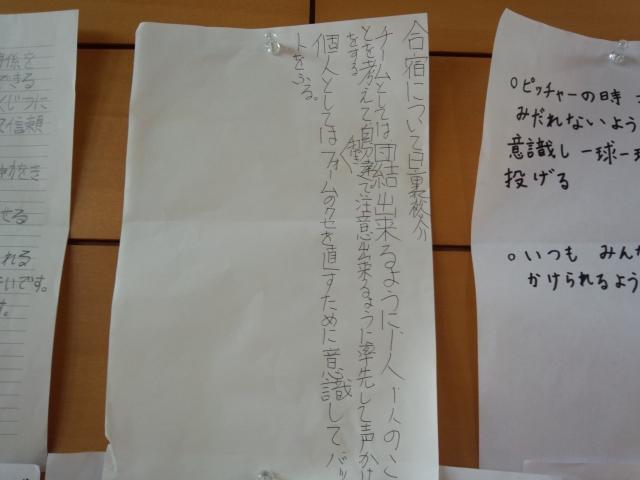 係を
きる
くじつに
信頼
せる
れる
いです。
す。
合宿について
チームとしては団結出来るように1人1人のこ
とを考えて で注意出来るように率先して声かけ
をする
個人としてはフォームのクセを直すために意識してバッ
トをふる。
○ピッチャーの時
みだれないよう
意識し一球一
投げる
○いつも みん
かけられるよう